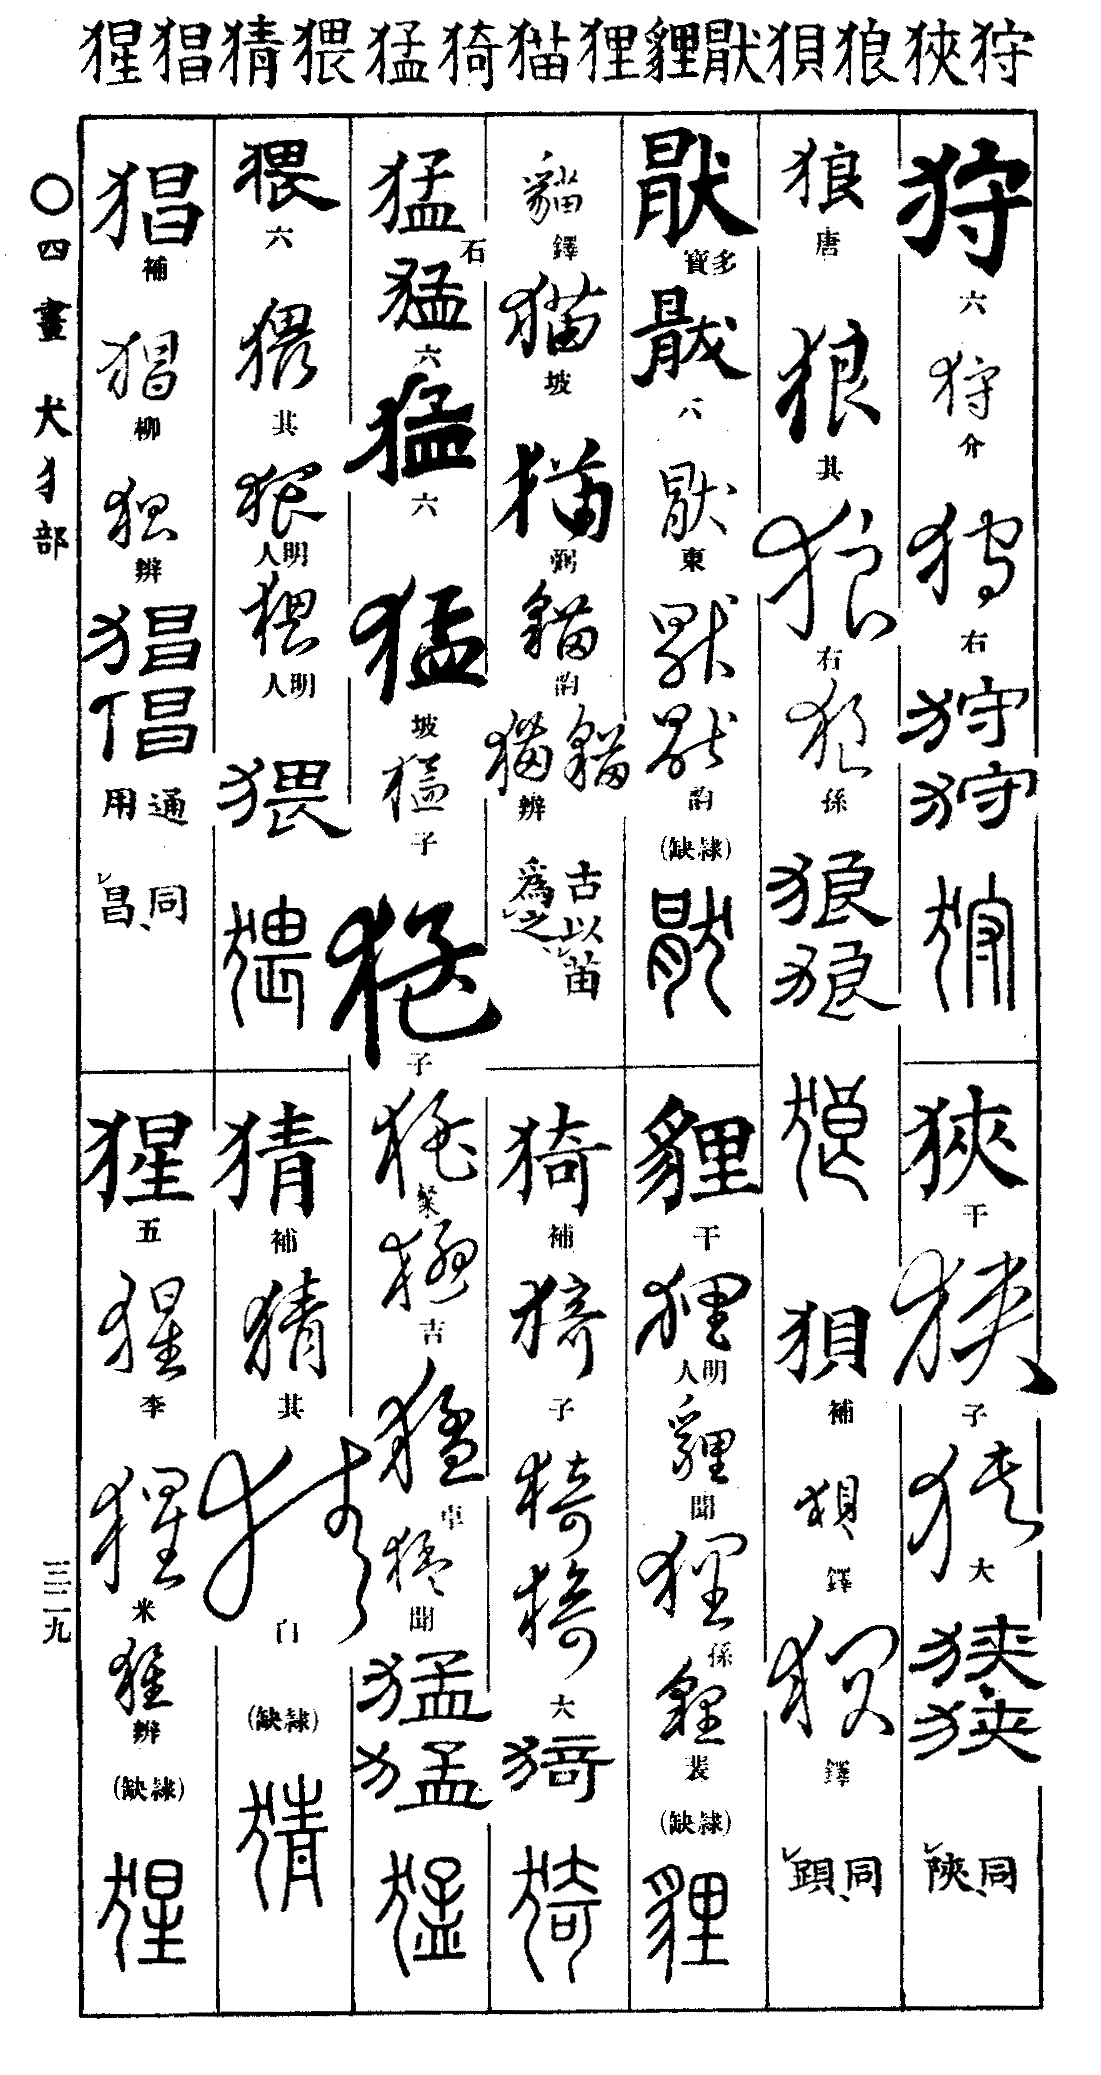 狩狹狼狽猒貍狸猫猗猛猥猜猖猩
狩 六 狩 介 狩 右 狩 狩 狩
狹 干 狹 子 狹 大 狹 狹 同陝
狼 唐 狼 其 狼 右 狼 孫 狼 狼 狼
狽 補 狽 鐸 狽 鐸 同
猒 多寶 猒 六 猒 東 猒 猒 韵 (隸缺) 猒
貍 干 狸 明人 貍 聞 狸 孫 貍 裴 (隸缺) 貍
貓 鐸 猫 坡 猫 弼 貓 韵 貓 猫 辨 古以苗為之
猗 補 猗 子 猗 猗 大 猗 猗
猛 石 猛 六 猛 六 猛 坡 猛 子 猛 子 猛 粲 猛 吉 猛 卓 猛 聞 猛 猛 猛
猥 六 猥 其 猥 明人 猥 明人 猥 猥
猜 補 猜 其 猜 白 (隸缺) 猜
猖 補 猖 柳 猖 辨 猖 倡 通用 同昌
猩 五 猩 李 猩 米 猩 辨 (隸缺) 猩
〇四畫 犬犭部
三二九